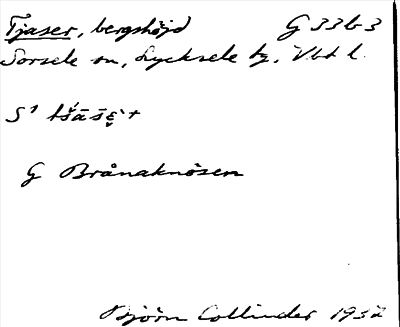 Tjaser, bergshöjd G 33b3
Sorsele sn, Lycksele tg, Vbt l.
G Brånaknösen
Björn Collinder 1932